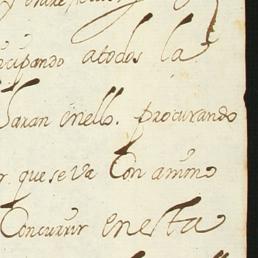 cipando atodos la
haran enello. procurando
r que se va Con animo
Concurrir enesta